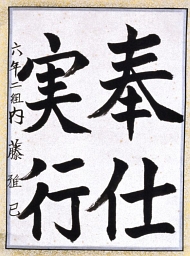 奉仕
実行
六年二組内藤雅巳